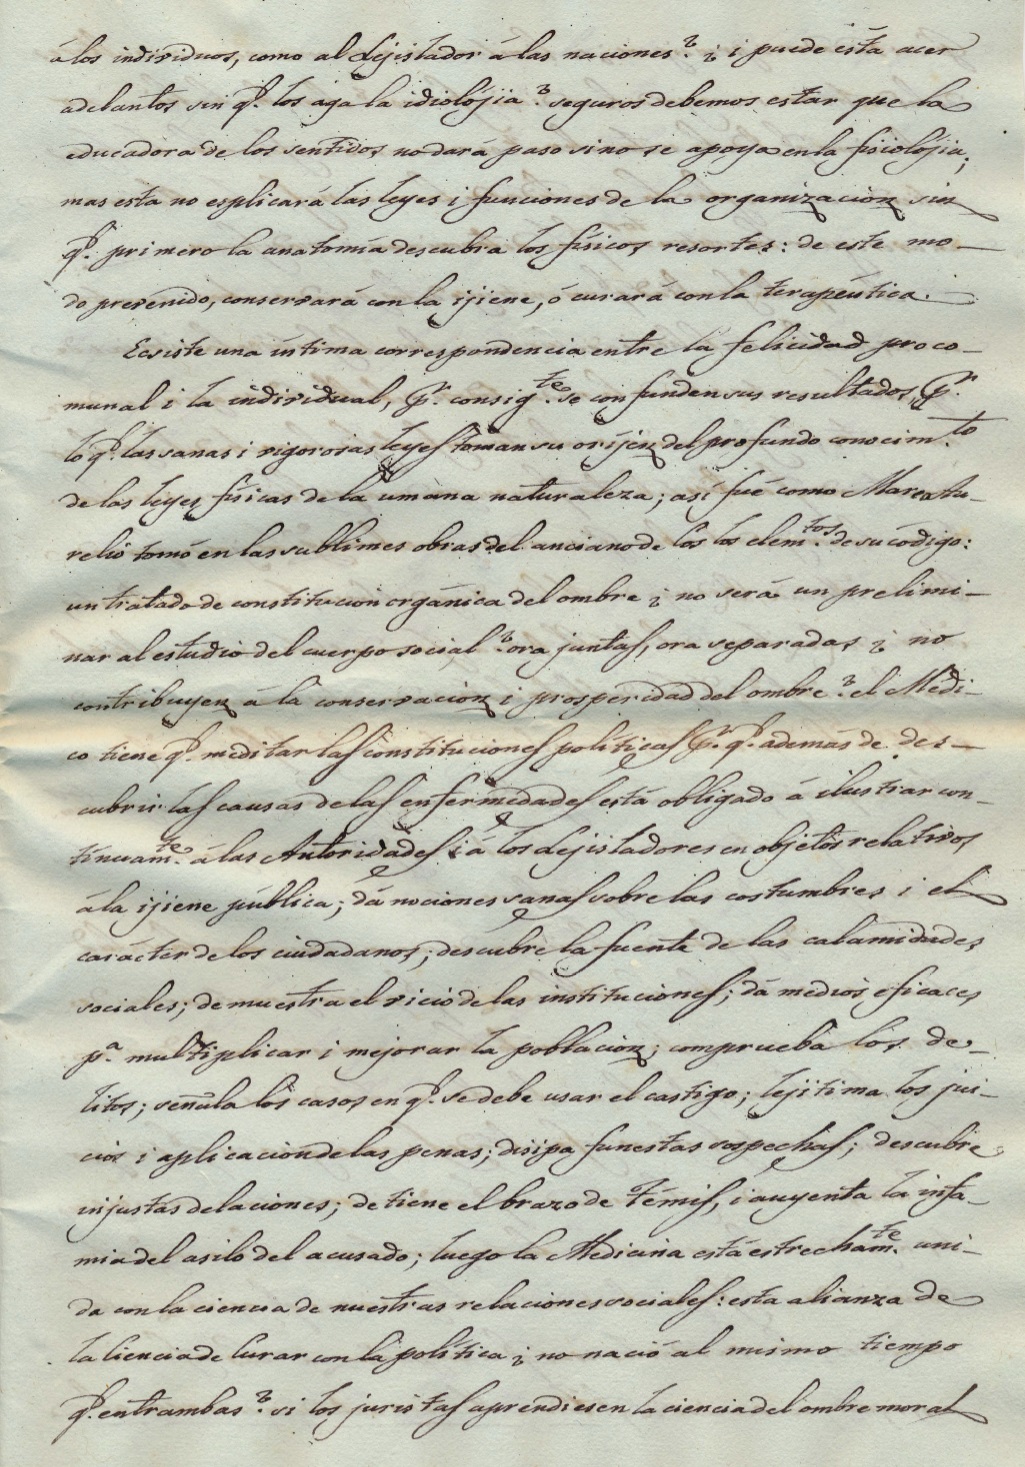 á los individuos, como al Lejislador á las naciones? ¿i puede ésta acer
adelantos sin q.e los aga la idiolójia? seguros debemos estar que la
educadora de los sentidos no dará paso si no se apoya en la fisiolójia;
mas esta no esplicará las leyes i funciones de la organizacion sin
q.e primero la anatomía descubra los físicos resortes: de este mo-
do prevenido, conservará con la ijiene, ó curará con la terapéutica.
Ecsiste una íntima correspondencia entre la felicidad proco-
munal i la individual, p.r consig.te se confunden sus resultados, p.r
lo q.e las sanas i vigorosas leyes toman su oríjen del profundo conocim.to
de las leyes físicas de la umana naturaleza; así fué como Marco Au-
relio tomó en las sublimes obras del anciano de Cos los elem.tos de su código:
un tratado de constitucion orgánica del ombre ¿no será un prelimi-
nar al estudio del cuerpo social? ora juntas, ora separadas ¿no
contribuyen á la conservacion i prosperidad del ombre? el Médi-
co tiene q.e meditar las constituciones políticas p.r q.e además de des-
cubrir las causas de las enfermedades está obligado á ilustrar con-
tínuam.te á las Autoridades i á los Lejisladores en objetos relativos
á la ijiene pública; dá nociones sanas sobre las costumbres i el
carácter de los ciudadanos; descubre la fuente de las calamidades
sociales; demuestra el vicio de las instituciones; dá medios eficaces
p.a multiplicar i mejorar la poblacion; comprueba los de-
litos; señala los casos en q.e se debe usar el castigo; lejitima los jui-
cios i aplicacion de las penas; disipa funestas sospechas; descubre
injustas delaciones; detiene el brazo de Témis, i auyenta la infa-
mia del asilo del acusado; luego la Medicina está estrecham.te uni-
da con la ciencia de nuestras relaciones sociales: esta alianza de
la ciencia de curar con la política ¿no nació al mismo tiempo
q.e entrambas? si los juristas aprendiesen la ciencia del ombre moral